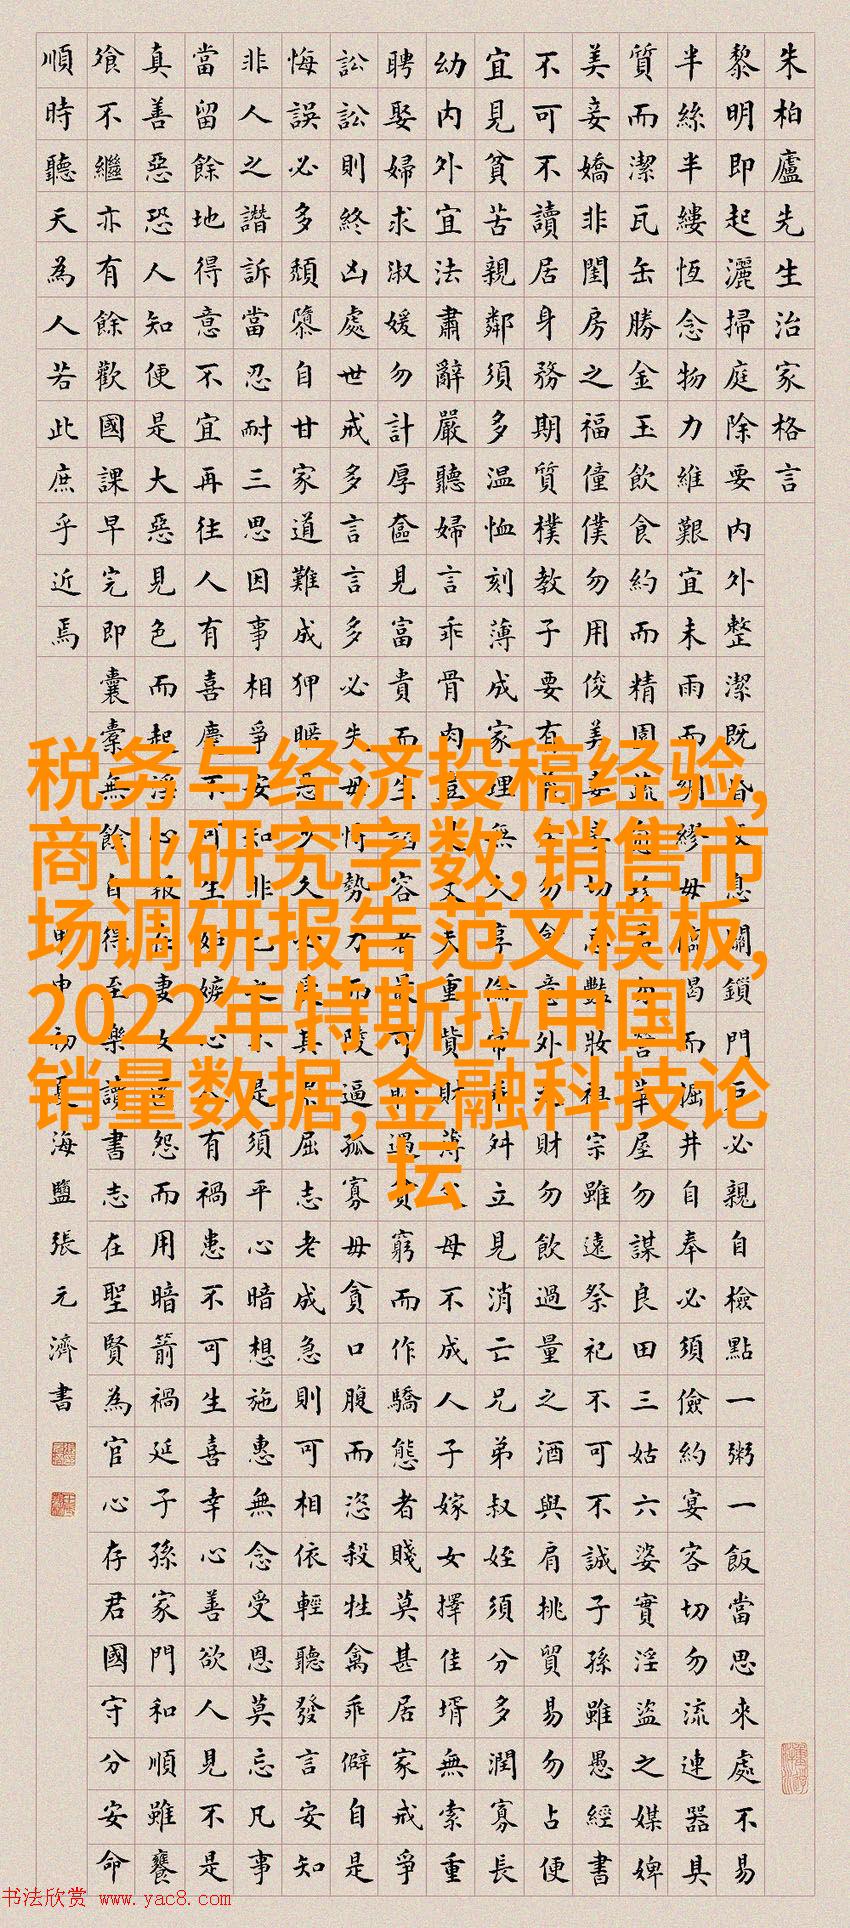 朱柏廬先生治家格言
黎明即起灑掃庭除要內外整潔既昏便息關鎖門戶必親自檢點一粥一飯當思來處不易
半絲半縷恆念物力維艱宜未雨而綢繆毋臨渴而掘井自奉必須儉約宴客切勿流連器具
質而潔瓦缶勝金玉飲食約而精園蔬愈珍勿營華屋勿謀良田三姑六婆實淫盜之媒婢
美妾嬌非閨房之福僮僕勿用俊美妻妾切忌豔妝祖宗雖遠祭祀不可不誠子孫雖愚經書
不可不讀居身務期質樸教子要有義方勿貪意外之財勿飲過量之酒與肩挑貿易勿占便
宜見貧苦親鄰須多温恤刻薄成家理無久享倫常乖舛立見消亡兄弟叔姪須分多潤寡長
幼內外宜法肅辭嚴聽婦言乖骨肉豈是丈夫重貲財薄父母不成人子嫁女擇佳壻無索重
聘娶婦求淑媛勿計厚奩見富貴而生諂容者最可恥遇貧窮而作驕態者賤莫甚居家戒爭
訟訟則終凶處世戒多言言多必失毋恃勢力而陵逼孤寡毋貪口腹而恣殺牲禽乖僻自是
悔誤必多頹隳自甘家道難成狎暱惡少久必受其累屈志老成急則可相依輕聽發言安知
非人之譖訴當忍耐三思因事相爭安知非己之不是須平心暗想施惠無念受恩莫忘凡事
當留餘地得意不宜再往人有喜慶不可生妒嫉心人有禍患不可生喜幸心善欲人見不是
真善惡恐人知便是大惡見色而起淫心報在妻女匿怨而用暗箭禍延子孫家門和順雖饔
飧不繼亦有餘歡國課早完即囊橐無餘自得至樂讀書志在聖賢為官心存君國守分安命
順時聽天為人若此庶乎近焉
甲申初夏海鹽張元濟書
税务与经济投稿经验,
商业研究字数,销售市
场调研报告范文模板,
2022年特斯拉中国
销量数据,金融科技论
坛
书法欣赏 www.yac8.com